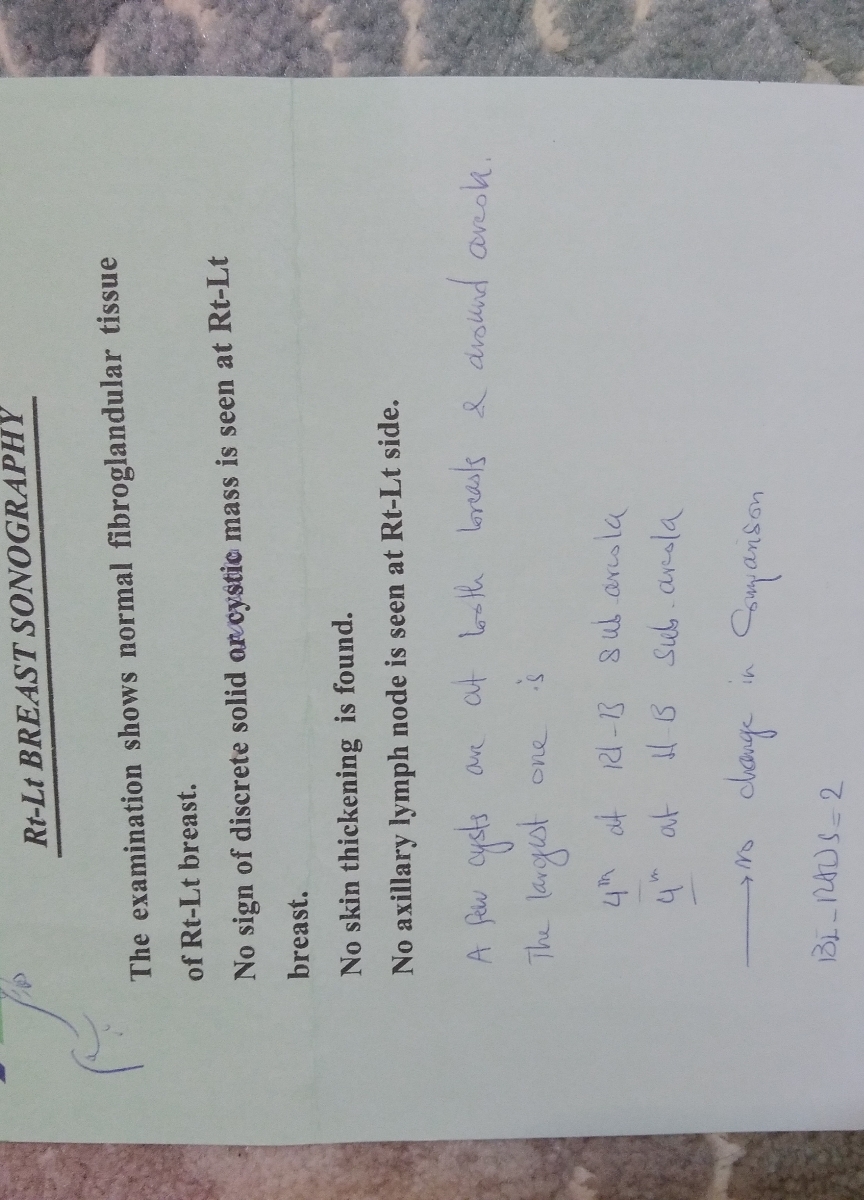 Rt-Lt BREAST SONOGRAPHY
The examination shows normal fibroglandular tissue
of Rt-Lt breast.
No sign of discrete solid or cystic mass is seen at Rt-Lt
breast.
No skin thickening is found.
No axillary lymph node is seen at Rt-Lt side.
A few cysts are at both breasts & around areola.
The largest one is
4m at Rt-B sub areola
4m at lt-B sub-areola
→ no change in Comparison
BI-RADS=2